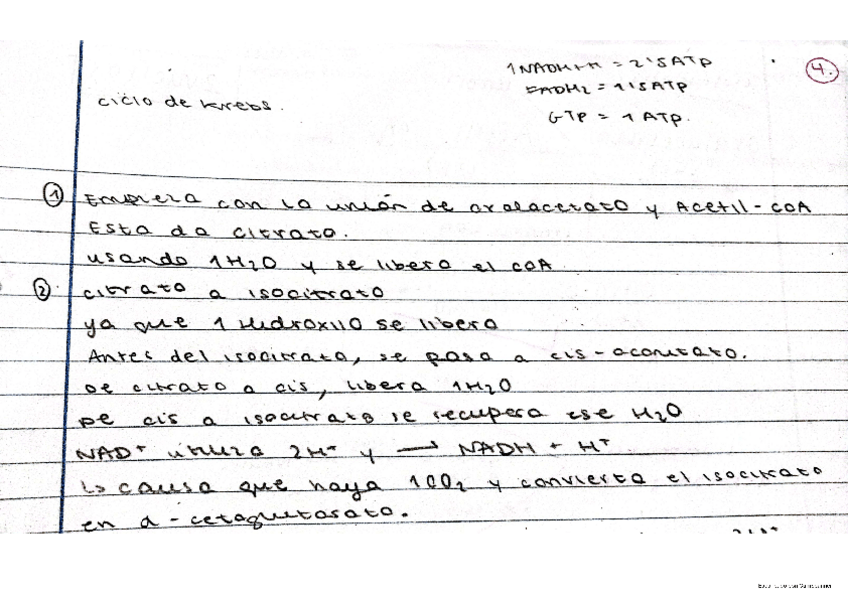 1NADH+H = 2'5ATP
4.
FADH2 = 1'5ATP
ciclo de krebs.
GTP = 1 ATP.
① Empieza con la unión de oxalacetato y Acetil-COA
Esta da citrato.
usando 1H2O y se libera el COA
② citrato a isocitrato
ya que 1 Hidroxilo se libera
Antes del isocitrato, se pasa a cis-aconitato.
De citrato a cis, libera 1H2O
De cis a isocitrato se recupera ese H2O
NAD+ utiliza 2H+ y → NADH + H+
↳ causa que haya 1CO2 y convierta el isocitrato
en α-cetoglutarato.